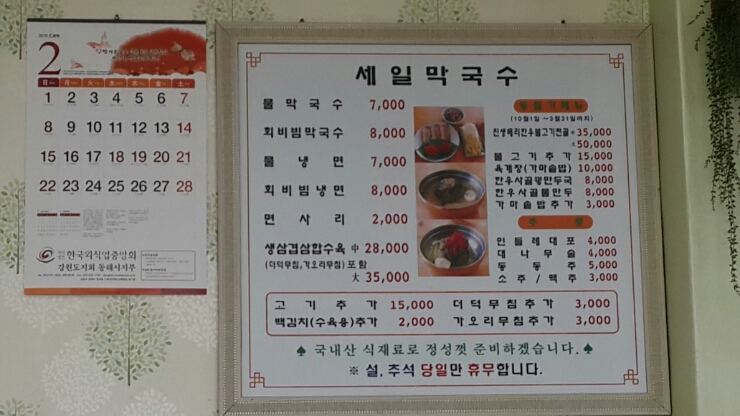 2
1 2 3 4 5 6 7
8 9 10 11 12 13 14
15 16 17 18 19 20 21
22 23 24 25 26 27 28
한국외식업중앙회
강원도지회 동해시지부
세일막국수
물막국수 7,000
회비빔막국수 8,000
물냉면 7,000
회비빔냉면 8,000
면사리 2,000
생삼겹삼합수육 中 28,000
(더덕무침,가오리무침) 포함
大 35,000
동절기메뉴
(10월1일 ~3월31일까지)
35,000
大 50,000
불고기추가 15,000
육개장(가마솥밥) 10,000
한우사골떡만두국 8,000
한우사골물만두 8,000
가마솥밥추가 3,000
주류
민들레대포 4,000
대나무술 4,000
동동주 5,000
소주 / 맥주 3,000
고기추가 15,000 더덕무침추가 3,000
백김치(수육용)추가 2,000 가오리무침추가 3,000
♠ 국내산 식재료로 정성껏 준비하겠습니다. ♠
※ 설, 추석 당일만 휴무합니다.